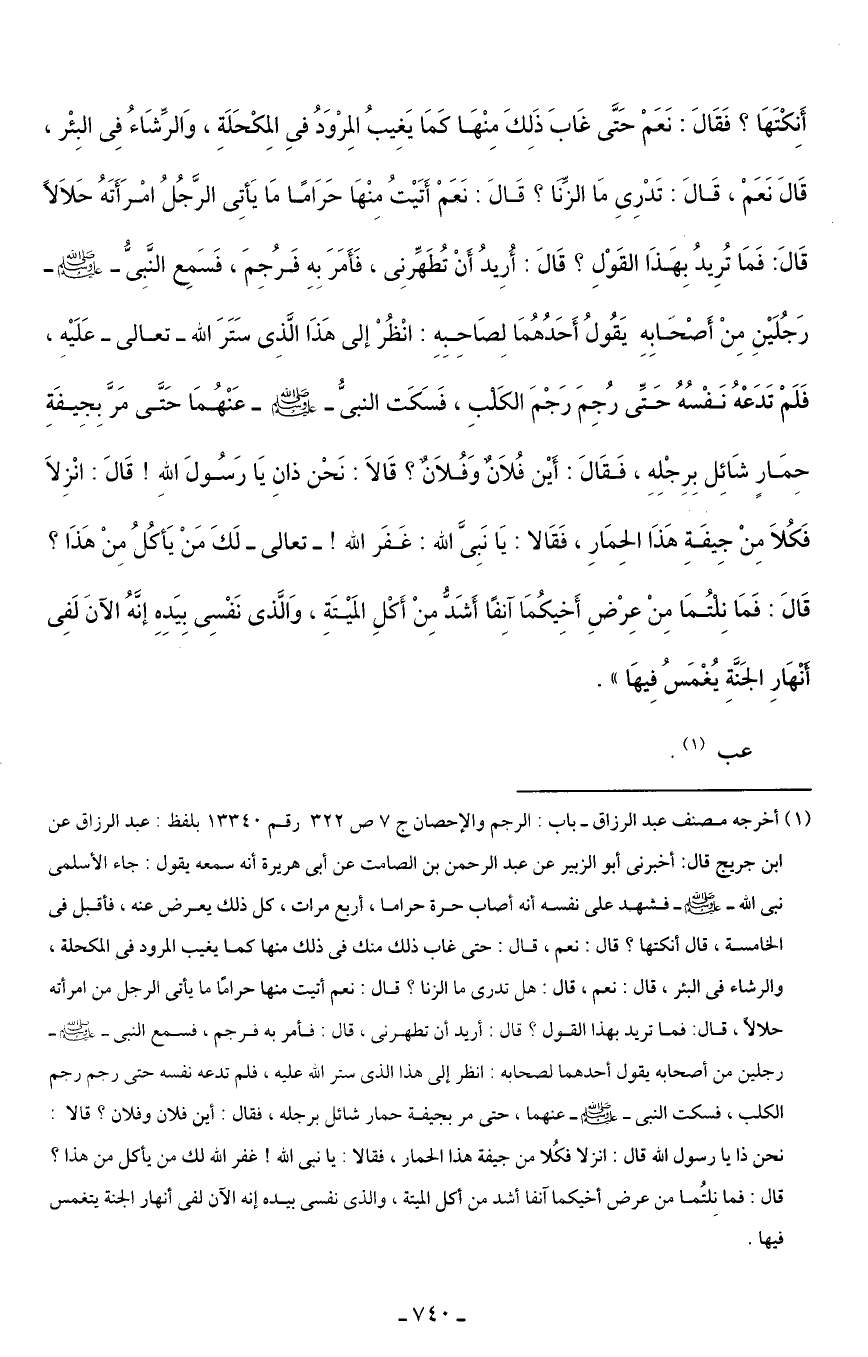 أَنِكْتَهَا ؟ فَقَالَ : نَعَمْ حَتَّى غَابَ ذَلِكَ مِنْهَا كَمَا يَغِيبُ المِرْوَدُ فِى المِكْحَلَةِ ، وَالرِّشَاءُ فِى البِئْرِ ،
قَالَ نَعَمْ ، قَالَ : تَدْرِى مَا الزِّنَا ؟ قَالَ : نَعَمْ أَتَيْتُ مِنْهَا حَرَامًا مَا يَأتِى الرَّجُلُ امْرَأَتَهُ حَلَالاً
قَالَ: فَمَا تُرِيدُ بِهَذَا القَوْلِ ؟ قَالَ : أُرِيدُ أَنْ تُطَهِّرَنِى ، فَأَمَرَ بِهِ فَرُجِمَ ، فَسَمِعَ النَّبِىُّ ـ ﷺ ـ
رَجُلَيْنِ مِنْ أَصْحَابِهِ يَقُولُ أَحَدُهُمَا لِصَاحِبِهِ : انْظُرْ إِلى هَذَا الَّذِى سَتَرَ الله ـ تعالى ـ عَلَيْهِ ،
فَلَمْ تَدَعْهُ نَفْسُهُ حَتَّى رُجِمَ رَجْمَ الكَلْبِ ، فَسَكَتَ النبىُّ ـ ﷺ ـ عَنْهُمَا حَتَّى مَرَّ بِجِيفَةِ
حِمَارٍ شَائِلٍ بِرِجْلِهِ ، فَقَالَ : أَيْنِ فُلَانٌ وَفُلَانٌ ؟ قَالَا : نَحْن ذَانِ يَا رَسُولَ اللهِ ! قَالَ : انْزِلَا
فَكُلَا مِنْ جِيفَةِ هَذَا الحِمارِ ، فَقَالا : يَا نَبِىَّ الله : غَفَر الله ! ـ تعالى ـ لَكَ مَنْ يَأكُلُ مِنْ هَذَا ؟
قَالَ : فَمَا نِلْتُمَا مِنْ عِرْضِ أَخِيكُمَا آنِفًا أَشَدُّ مِنْ أَكْلِ المَيْتَةِ ، وَالَّذى نَفْسِى بِيَدِهِ إِنَّهُ الآنَ لَفِى
أَنْهَارِ الجَنَّةِ يُغْمَسُ فِيهَا » .
عب (١) .
(١) أخرجه مصنف عبد الرزاق ـ باب : الرجم والإحصان ج ٧ ص ٣٢٢ رقم ١٣٣٤٠ بلفظ : عبد الرزاق عن
ابن جريج قال: أخبرنى أبو الزبير عن عبد الرحمن بن الصامت عن أبى هريرة أنه سمعه يقول : جاء الأسلمى
نبى الله ـ ﷺ ـ فشهد على نفسه أنه أصاب حرة حراما ، أربع مرات ، كل ذلك يعرض عنه ، فأقبل فى
الخامسة ، قال أنكتها ؟ قال : نعم ، قال : حتى غاب ذلك منك فى ذلك منها كما يغيب المرود فى المكحلة ،
والرشاء فى البئر ، قال : نعم ، قال : هل تدرى ما الزنا ؟ قال : نعم أتيت منها حرامًا ما يأتى الرجل من امرأته
حلالاً ، قال: فما تريد بهذا القول ؟ قال : أريد أن تطهرنى ، قال : فأمر به فرجم ، فسمع النبى ـ ﷺ ـ
رجلين من أصحابه يقول أحدهما لصحابه : انظر إلى هذا الذى ستر الله عليه ، فلم تدعه نفسه حتى رجم رجم
الكلب ، فسكت النبى ـ ﷺ ـ عنهما ، حتى مر بجيفة حمار شائل برجله ، فقال : أين فلان وفلان ؟ قالا :
نحن ذا يا رسول الله قال : انزلا فكُلا من جيفة هذا الحمار ، فقالا : يا نبى الله ! غفر الله لك من يأكل من هذا ؟
قال : فما نِلتُما من عرض أخيكما آنفا أشد من أكل الميتة ، والذى نفسى بيده إنه الآن لفى أنهار الجنة يتغمس
فيها .
ـ ٧٤٠ ـ